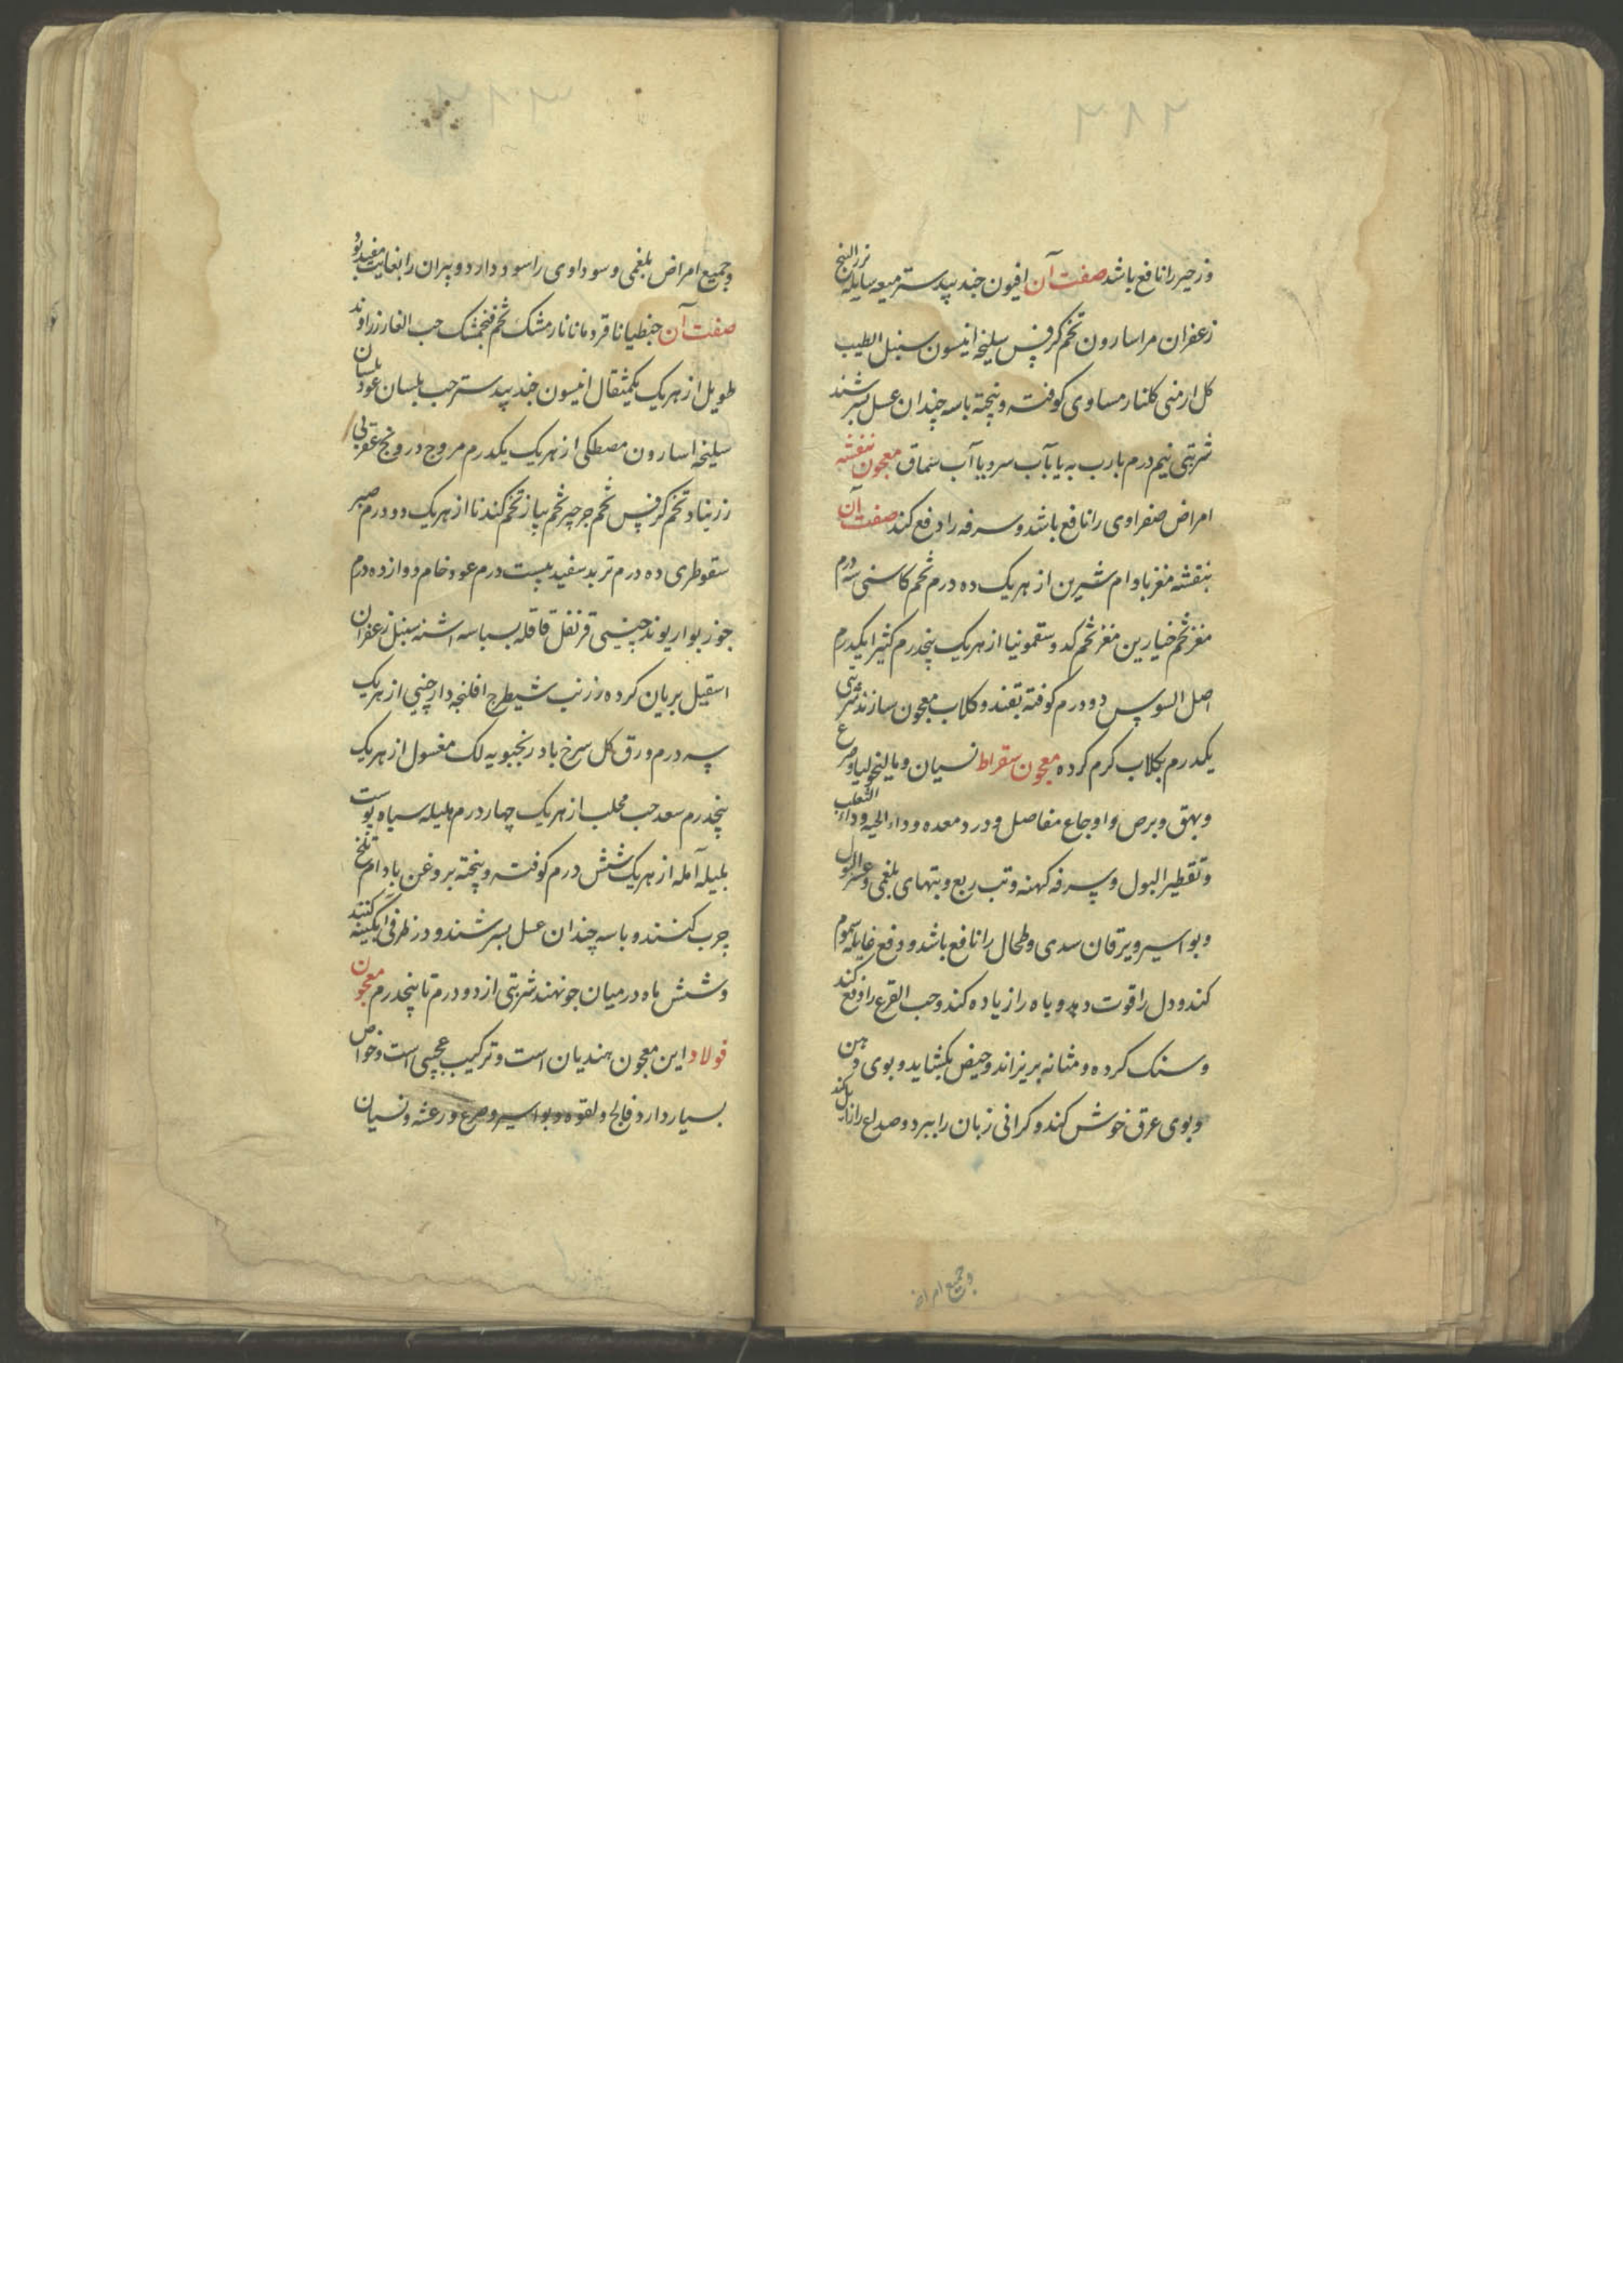 وزحیر را نافع باشد صفت آن افیون جندبیدستر میعه سایله بزرالبنج
زعفران مر اسارون تخم کرفس سلیخه انیسون سنبل الطیب
کل ارمنی کلنار مساوی کوفته و بیخته با سه چندان عسل بسرشند
شربتی نیم درم بارب به یا بآب سرد یا آب سماق معجون بنفشه
امراض صفراوی را نافع باشد و سرفه را دفع کند صفت آن
بنفشه مغز بادام شیرین از هر یک ده درم تخم کاسنی سه درم
مغز تخم خیارین مغز تخم کدو سقمونیا از هر یک پنجدرم کثیرا یکدرم
اصل السوس دو درم کوفته بقند و کلاب معجون سازند شربتی
یکدرم بکلاب کرم کرده معجون سقراط نسیان و مالیخولیا و صرع
و بهق و برص و اوجاع مفاصل و درد معده و داء الحیه و داء الثعلب
و تقطیر البول و سرفه کهنه و تب ربع و تبهای بلغمی و عسر البول
و بواسیر و یرقان سدی و طحال را نافع باشد و دفع غایله سموم
کند و دل را قوت دهد و باه را زیاده کند و حب القرع را دفع کند
و سنک کرده و مثانه بریزاند و حیض بکشاید و بوی دهن
و بوی عرق خوش کند و کرانی زبان را ببرد و صداع را زایل کند
و جمیع امراض
و جمیع امراض بلغمی و سوداوی را سود دارد و پیران را بغایت مفید بود
صفت آن جنطیانا قردمانا نارمشک تخم فنجمشک حب الغار زراوند
طویل از هر یک یکمثقال انیسون جندبیدستر حب بلسان عود بلسان
سلیخه اسارون مصطکی از هر یک یکدرم مروج درونج عقربی
زرنباد تخم کرفس تخم جرجیر تخم پیاز تخم کندنا از هر یک دو درم صبر
سقوطری ده درم تربد سفید بیست درم عود خام دوازده درم
جوز بوا ریوند چینی قرنفل قاقله بسباسه اشنه سنبل زعفران
اسقیل بریان کرده زرنب شیطرج افلنجه دارچینی از هر یک
سه درم ورق کل سرخ بادرنجبویه لک مغسول از هر یک
پنجدرم سعد حب محلب از هر یک چهار درم هلیله سیاه پوست
بلیله آمله از هر یک شش درم کوفته و بیخته بروغن بادام تلخ
چرب کنند و با سه چندان عسل بسرشند و در ظرفی ابکینه کنند
و شش ماه در میان جو نهند شربتی از دو درم تا پنجدرم معجون
فولاد این معجون هندیان است و ترکیب عجیبی است و خواص
بسیار دارد فالج و لقوه و بواسیر و صرع و رعشه و نسیان